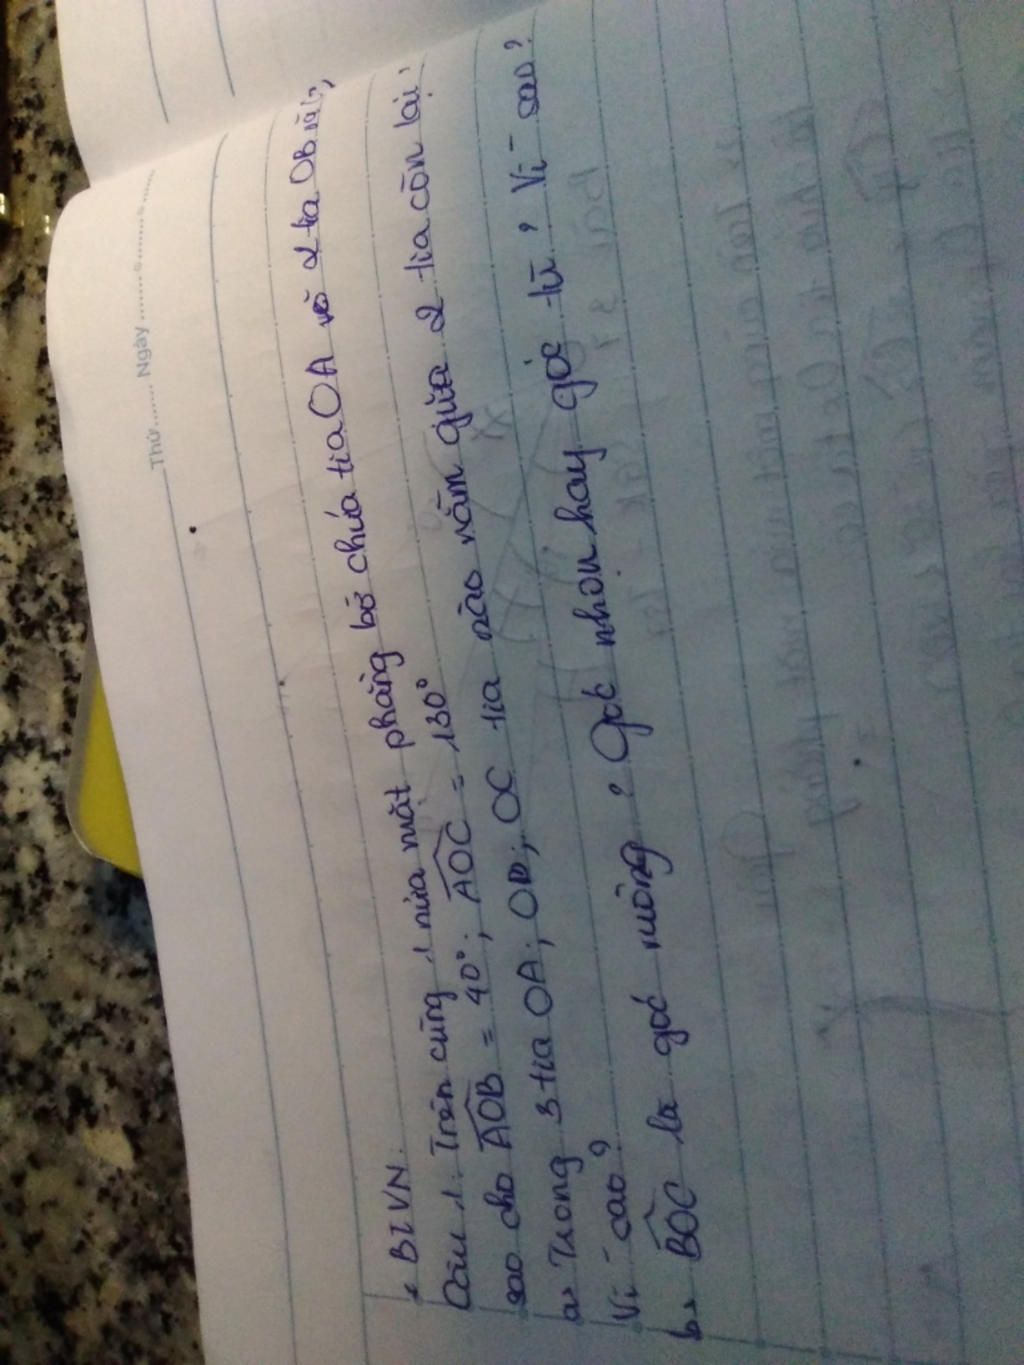 Thứ....... Ngày ..................
* BTVN:
Câu 1: Trên cùng 1 nửa mặt phẳng bờ chứa tia OA vẽ 2 tia OB và
sao cho AOB = 40°; AOC = 130°
a, Trong 3 tia OA; OB; OC tia nào nằm giữa 2 tia còn lại,
Vì sao?
b, BOC là góc vuông? Góc nhọn hay góc tù? Vì sao?